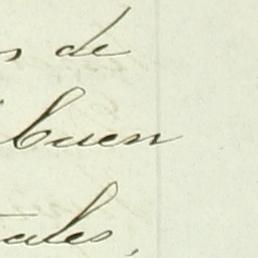 s de
buen
tales,